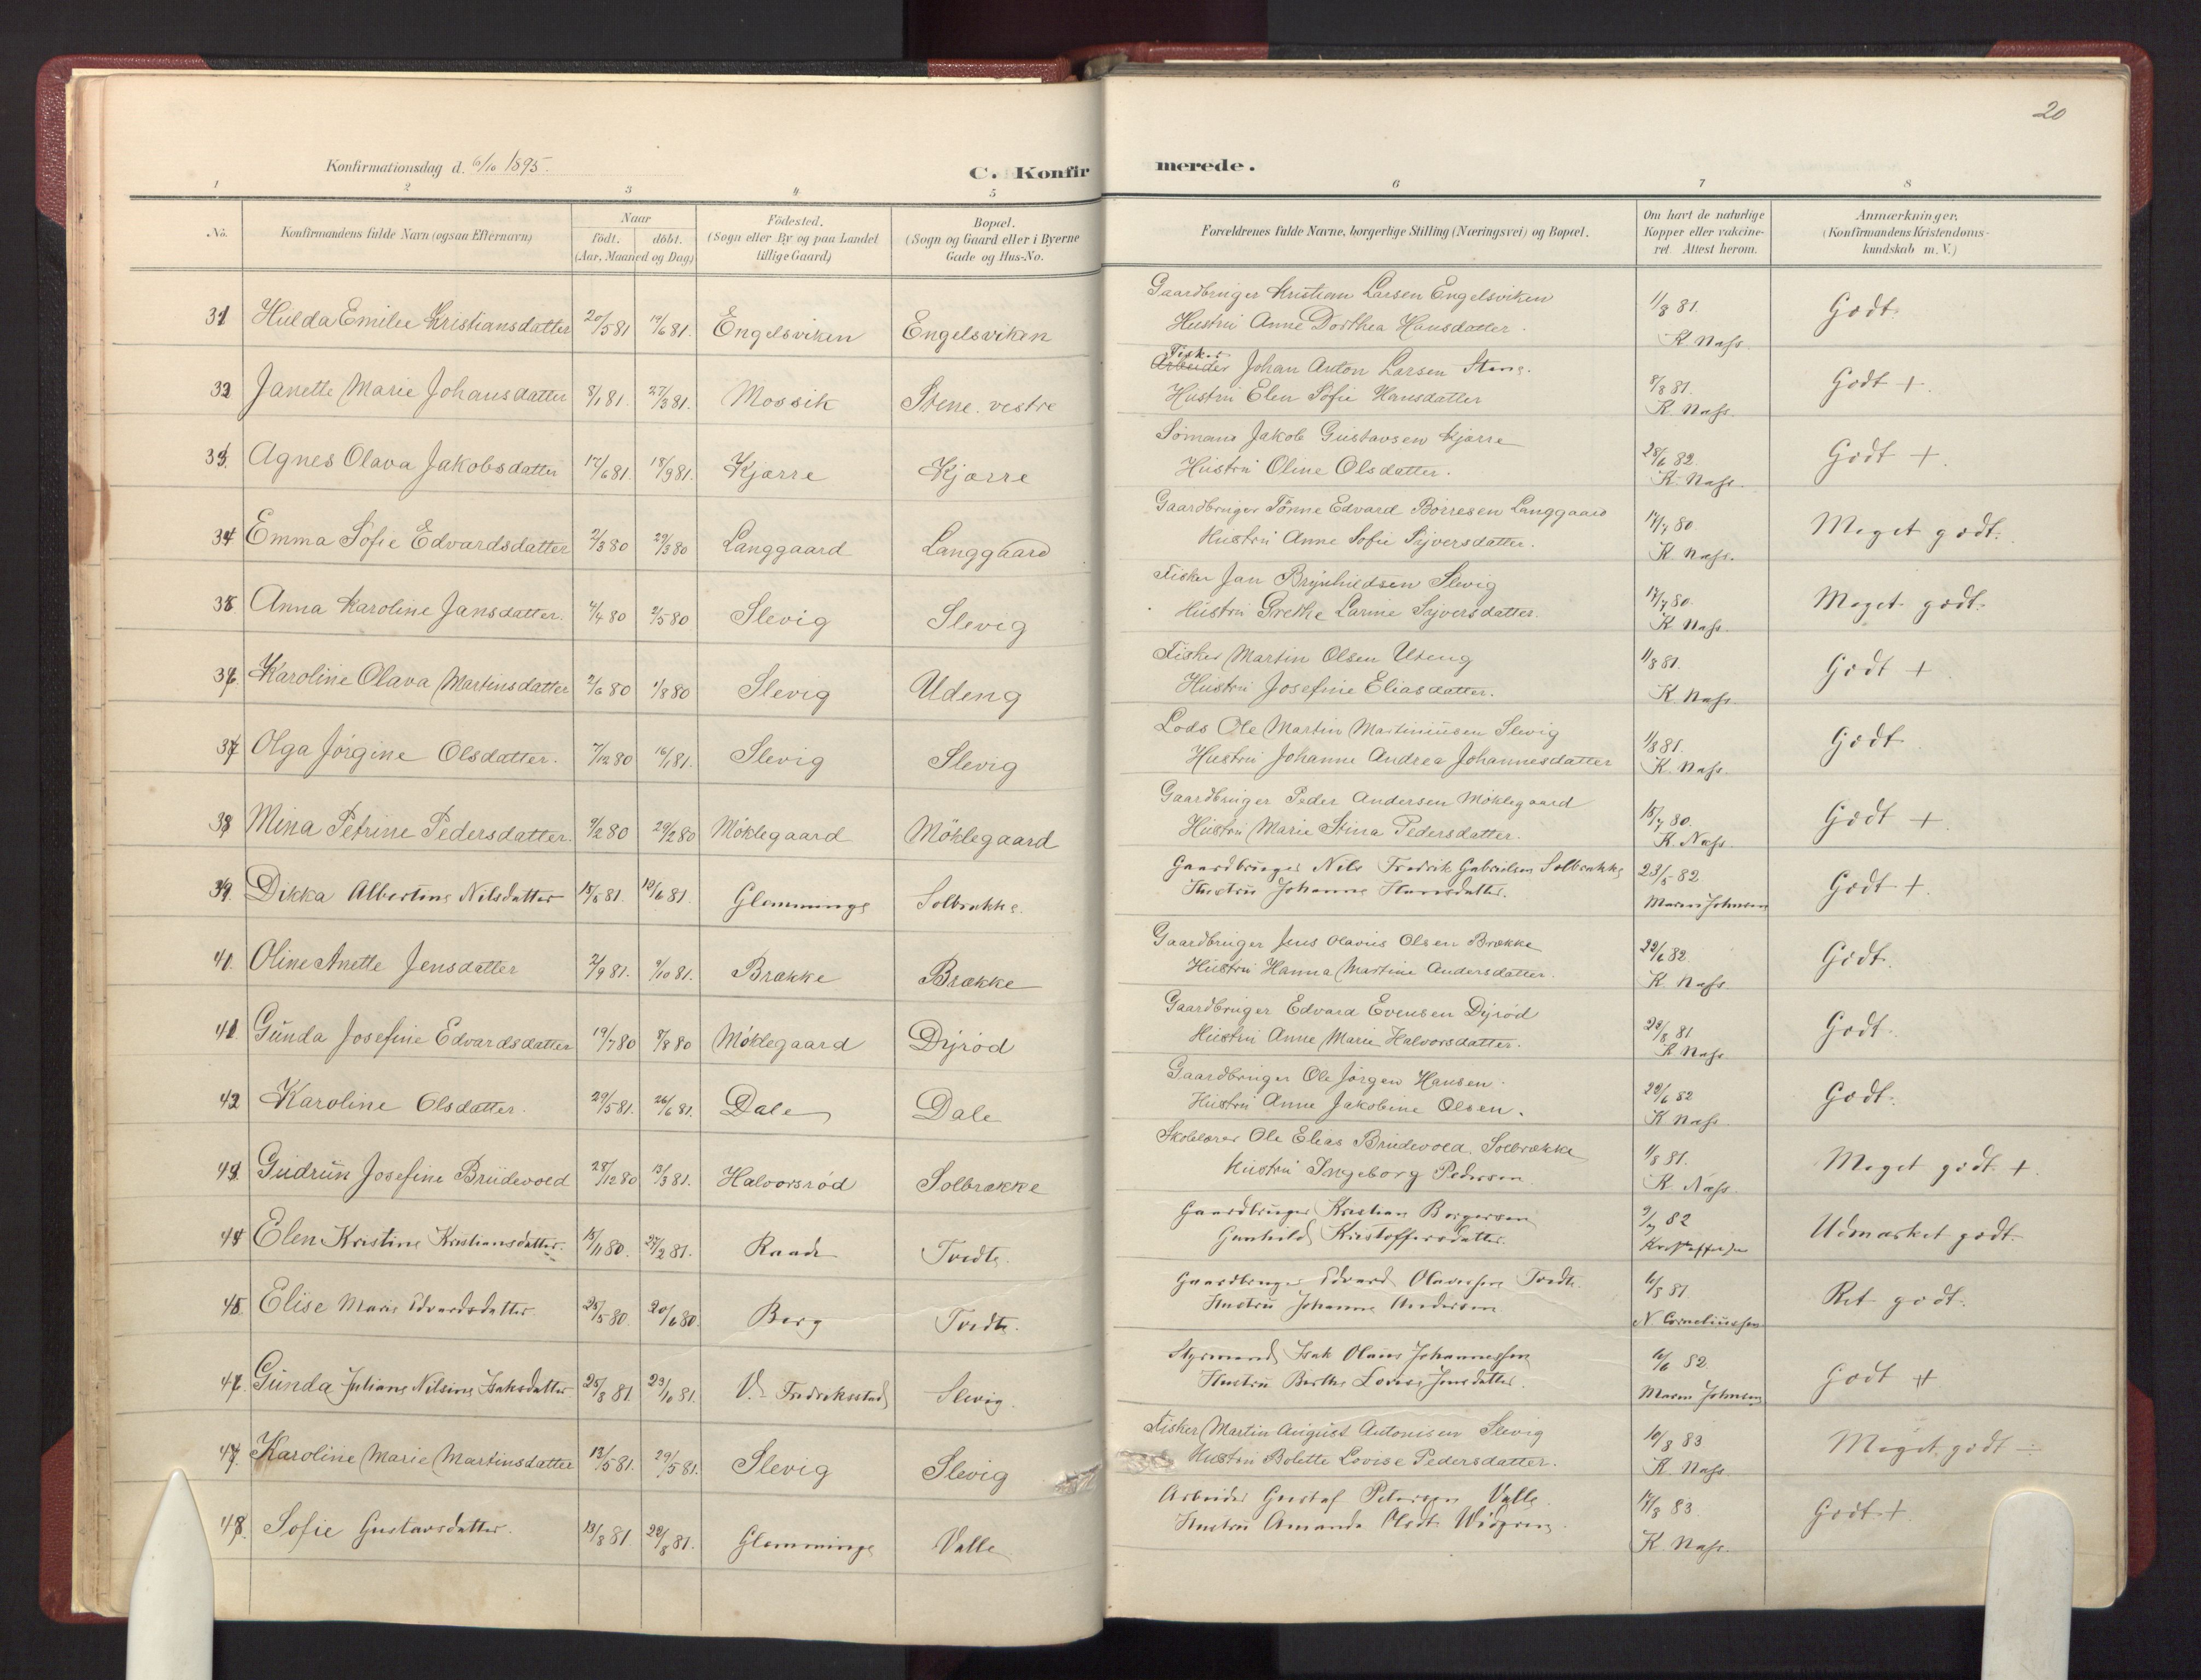 20
Konfirmationsdag d. 6/10 1895.
C. Konfirmerede.
1 2 3 4 5 6 7 8
No. Konfirmandens fulde Navn (ogsaa Efternavn) Naar födt. döbt. (Aar, Maaned og Dag) Födested. (Sogn eller By og paa Landet tillige Gaard) Bopæl. (Sogn og Gaard eller i Byerne Gade og Hus-No. Forældrenes fulde Navne, borgerlige Stilling (Næringsvei) og Bopæl. Om havt de naturlige Kopper eller vakcineret. Attest herom. Anmærkninger. (Konfirmandens Kristendomskundskab m. V.)
31 Hulda Emilie Kristiansdatter 20/5 81 19/6 81. Engelsviken Engelsviken Gaardbruger Kristian Larsen Engelsviken 1/8 81. Godt.
Hustru Anne Dorthea Hansdatter. K Næss.
32 Janette Marie Johansdatter 8/1 81. 27/3 81. Mossik Stene. vestre Fisker Arbeider Johan Anton Larsen Stene. 8/8 81. Godt +.
Hustru Elen Sofie Hansdatter K. Næss.
33. Agnes Olava Jakobsdatter 17/6 81. 18/9 81. Kjærre Kjærre Sömand Jakob Gustavsen Kjærre 28/6 82. Godt +.
Hustru Oline Olsdatter. K. Næss.
34 Emma Sofie Edvardsdatter 2/3 80 29/3 80 Langgaard Langgaard Gaardbruger Tönne Edvard Börresen Langgaard 17/7 80 Meget godt.
Hustru Anne Sofie Syversdatter. K. Næss.
35 Anna Karoline Jansdatter. 4/4 80 2/5 80 Slevig Slevig Fisker Jan Brynhildsen Slevig 17/7 80. Meget godt.
Hustru Grethe Larine Syversdatter. K. Næss.
36. Karoline Olava Martinsdatter 2/6 80 1/8 80 Slevig Udeng Fisker Martin Olsen Uteng 1/8 81. Godt +
Hustru Josefine Eliasdatter. K. Næss.
37 Olga Jörgine Olsdatter. 7/12 80 16/1 81. Slevig Slevig Lods Ole Martin Martiniusen Slevig 1/8 81. Godt
Hustru Johanne Andrea Johannesdatter K. Næss.
38 Mina Petrine Pedersdatter. 9/2 80 29/2 80 Möklegaard Möklegaard Gaardbruger Peder Andersen Möklegaard 15/7 80. Godt +.
Hustru Marie Stina Pedersdatter. K. Næss.
39. Dikka Albertine Nilsdatter 15/5 81. 19/6 81. Glemminge Solbrække. Gaardbruger Nils Fredrik Gabrielsen Solbrække 23/5 82 Godt +.
Hustru Johanne Hansdatter. Maren Johnsen
41. Oline Anette Jensdatter 2/9 81. 9/10 81. Brække Brække Gaardbruger Jens Olavus Olsen Brække 22/6 82 Godt.
Hustru Hanna Martine Andersdatter. K. Næss
41. Gunda Josefine Edvardsdatter 19/7 80 8/8 80 Möklegaard Dyröd Gaardbruger Edvard Evensen Dyröd 23/8 81 Godt.
Hustru Anne Marie Halvorsdatter. K Næss
42 Karoline Olsdatter. 29/5 81. 26/6 81. Dale Dale Gaardbruger Ole Jörgen Hansen. 29/6 82 Godt.
Hustru Anne Jakobine Olsen. K Næss.
43. Gudrun Josefine Brudevold 28/12 80 13/3 81. Halvorsröd Solbrække Skolelærer Ole Elias Brudevold. Solbrække 1/8 81. Meget godt +.
Hustru Ingeborg Pedersen K. Næss.
44 Elen Kristine Kristiansdatter. 15/11 80. 27/2 81. Raade Tvedte. Gaardbruger Kristian Borgersen 9/7 82 Udmærket godt.
Gunhild Kristoffersdatter. Kristoffersen
45. Elise Marie Edvardsdatter. 25/5 80. 20/6 80. Borg Tvedte. Gaardbruger Edvard Olavessen Tvedte 10/5 81 Ret godt.
Hustru Johanne Andersen N Corneliussen
47. Gunda Juliane Nilsine Isaksdatter 25/8 81 23/10 81. V. Fredriksstad Slevig. Styrmand Isak Olaus Johannessen 10/6 82. Godt +
Hustru Berthe Lovise Jensdatter. Maren Johnsen
47. Karoline Marie Martinsdatter 13/5 81. 29/5 81. Slevig Slevig Fisker Martin August Antonisen Slevig 10/8 83 Meget godt ÷
Hustru Bolette Lovise Pedersdatter. K. Næss
48. Sofie Gustavsdatter. 13/3 81. 28/8 81. Glemminge Valle Arbeider Gustaf Petersen Valle. 17/8 83. Godt +.
Hustru Amanda Olsdt. Widgren. K. Næss.